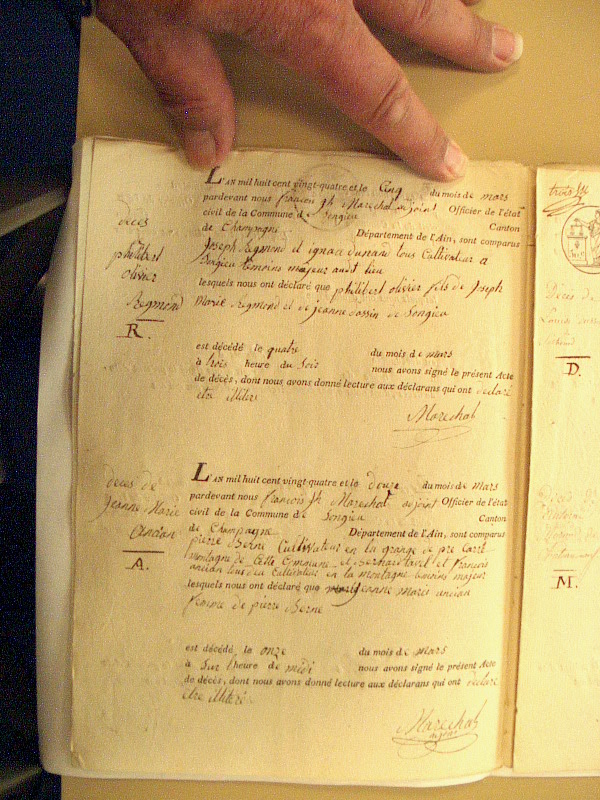 deces
philibert
olivier
Regmond
R.
L'AN mil huit cent vingt-quatre et le Cinq du mois de mars
pardevant nous françois Jh Marechal adjoint Officier de l'état
civil de la Commune de Songieu Canton
de Champagne Département de l'Ain, sont comparus
Joseph Regmond et ignace dunand tous Cultivateur a
Songieu temoins majeur audit lieu
lesquels nous ont déclaré que philibert olivier fils de Joseph
Marie Regmond et de jeanne dossin de Songieu
est décédé le quatre du mois de mars
à trois heure du Soir nous avons signé le présent Acte
de décès, dont nous avons donné lecture aux déclarans qui ont declaré
etre illiteré
Marechal
deces de
Jeanne Marie
Ancian
A.
L'AN mil huit cent vingt-quatre et le douze du mois de mars
pardevant nous françois Jh Marechal adjoint Officier de l'état
civil de la Commune de Songieu Canton
de Champagne Département de l'Ain, sont comparus
pierre Berne Cultivateur en la grange de pre Carré
montagne de Cette Commune et et françois
ancian tous deu Cultivateur en la montagne temoins majeur
lesquels nous ont déclaré que jeanne marie ancian
femme de pierre Berne
est décédé le onze du mois de mars
à Sur l'heure de midi nous avons signé le présent Acte
de décès, dont nous avons donné lecture aux déclarans qui ont declaré
etre illiteré
Marechal
adjoint
Décès de
D.
Décès de
M.